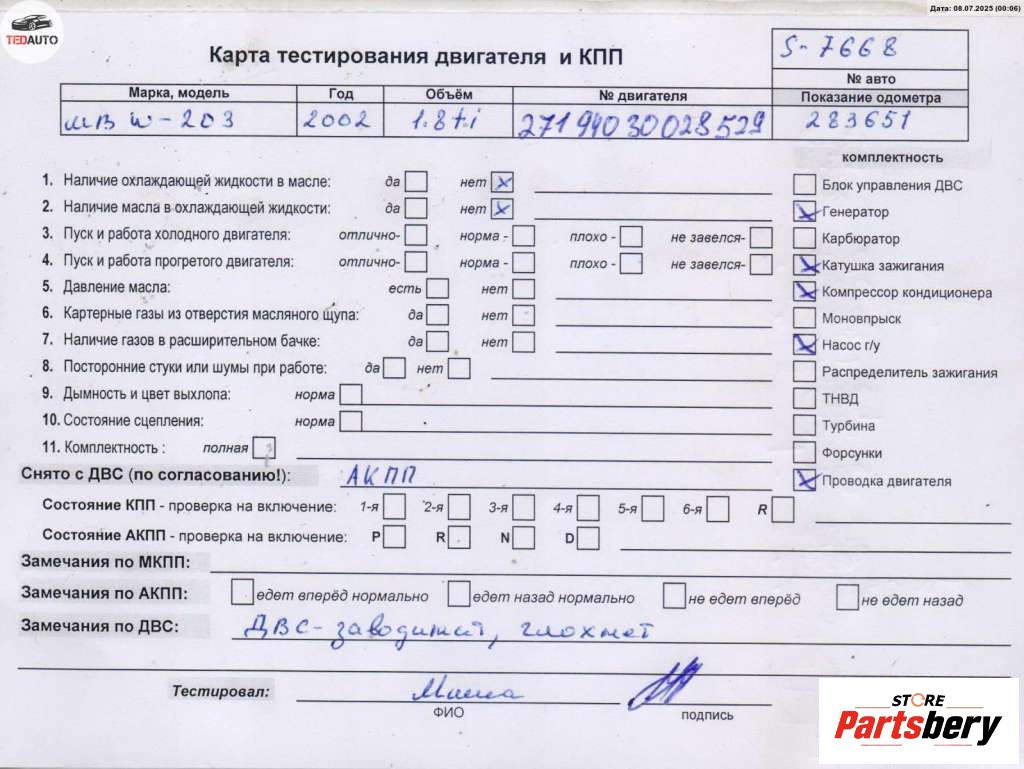 Дата: 08.07.2025 (00:06)
TEDAUTO
Карта тестирования двигателя и КПП
S-7668
№ авто
Марка, модель Год Объём № двигателя Показание одометра
МВ W-203 2002 1.8 t.i 27194030028529 283651
комплектность
1. Наличие охлаждающей жидкости в масле: да нет X Блок управления ДВС
2. Наличие масла в охлаждающей жидкости: да нет X X Генератор
3. Пуск и работа холодного двигателя: отлично- норма - плохо - не завелся- Карбюратор
4. Пуск и работа прогретого двигателя: отлично- норма - плохо - не завелся- X Катушка зажигания
5. Давление масла: есть нет X Компрессор кондиционера
6. Картерные газы из отверстия масляного щупа: да нет Моновпрыск
7. Наличие газов в расширительном бачке: да нет X Насос г/у
8. Посторонние стуки или шумы при работе: да нет Распределитель зажигания
9. Дымность и цвет выхлопа: норма ТНВД
10. Состояние сцепления: норма Турбина
11. Комплектность : полная Форсунки
Снято с ДВС (по согласованию!): АКПП X Проводка двигателя
Состояние КПП - проверка на включение: 1-я 2-я 3-я 4-я 5-я 6-я R
Состояние АКПП - проверка на включение: P R N D
Замечания по МКПП:
Замечания по АКПП: едет вперёд нормально едет назад нормально не едет вперёд не едет назад
Замечания по ДВС: ДВС - заводится, глохнет
Тестировал: Миша
ФИО подпись
STORE
Partsbery